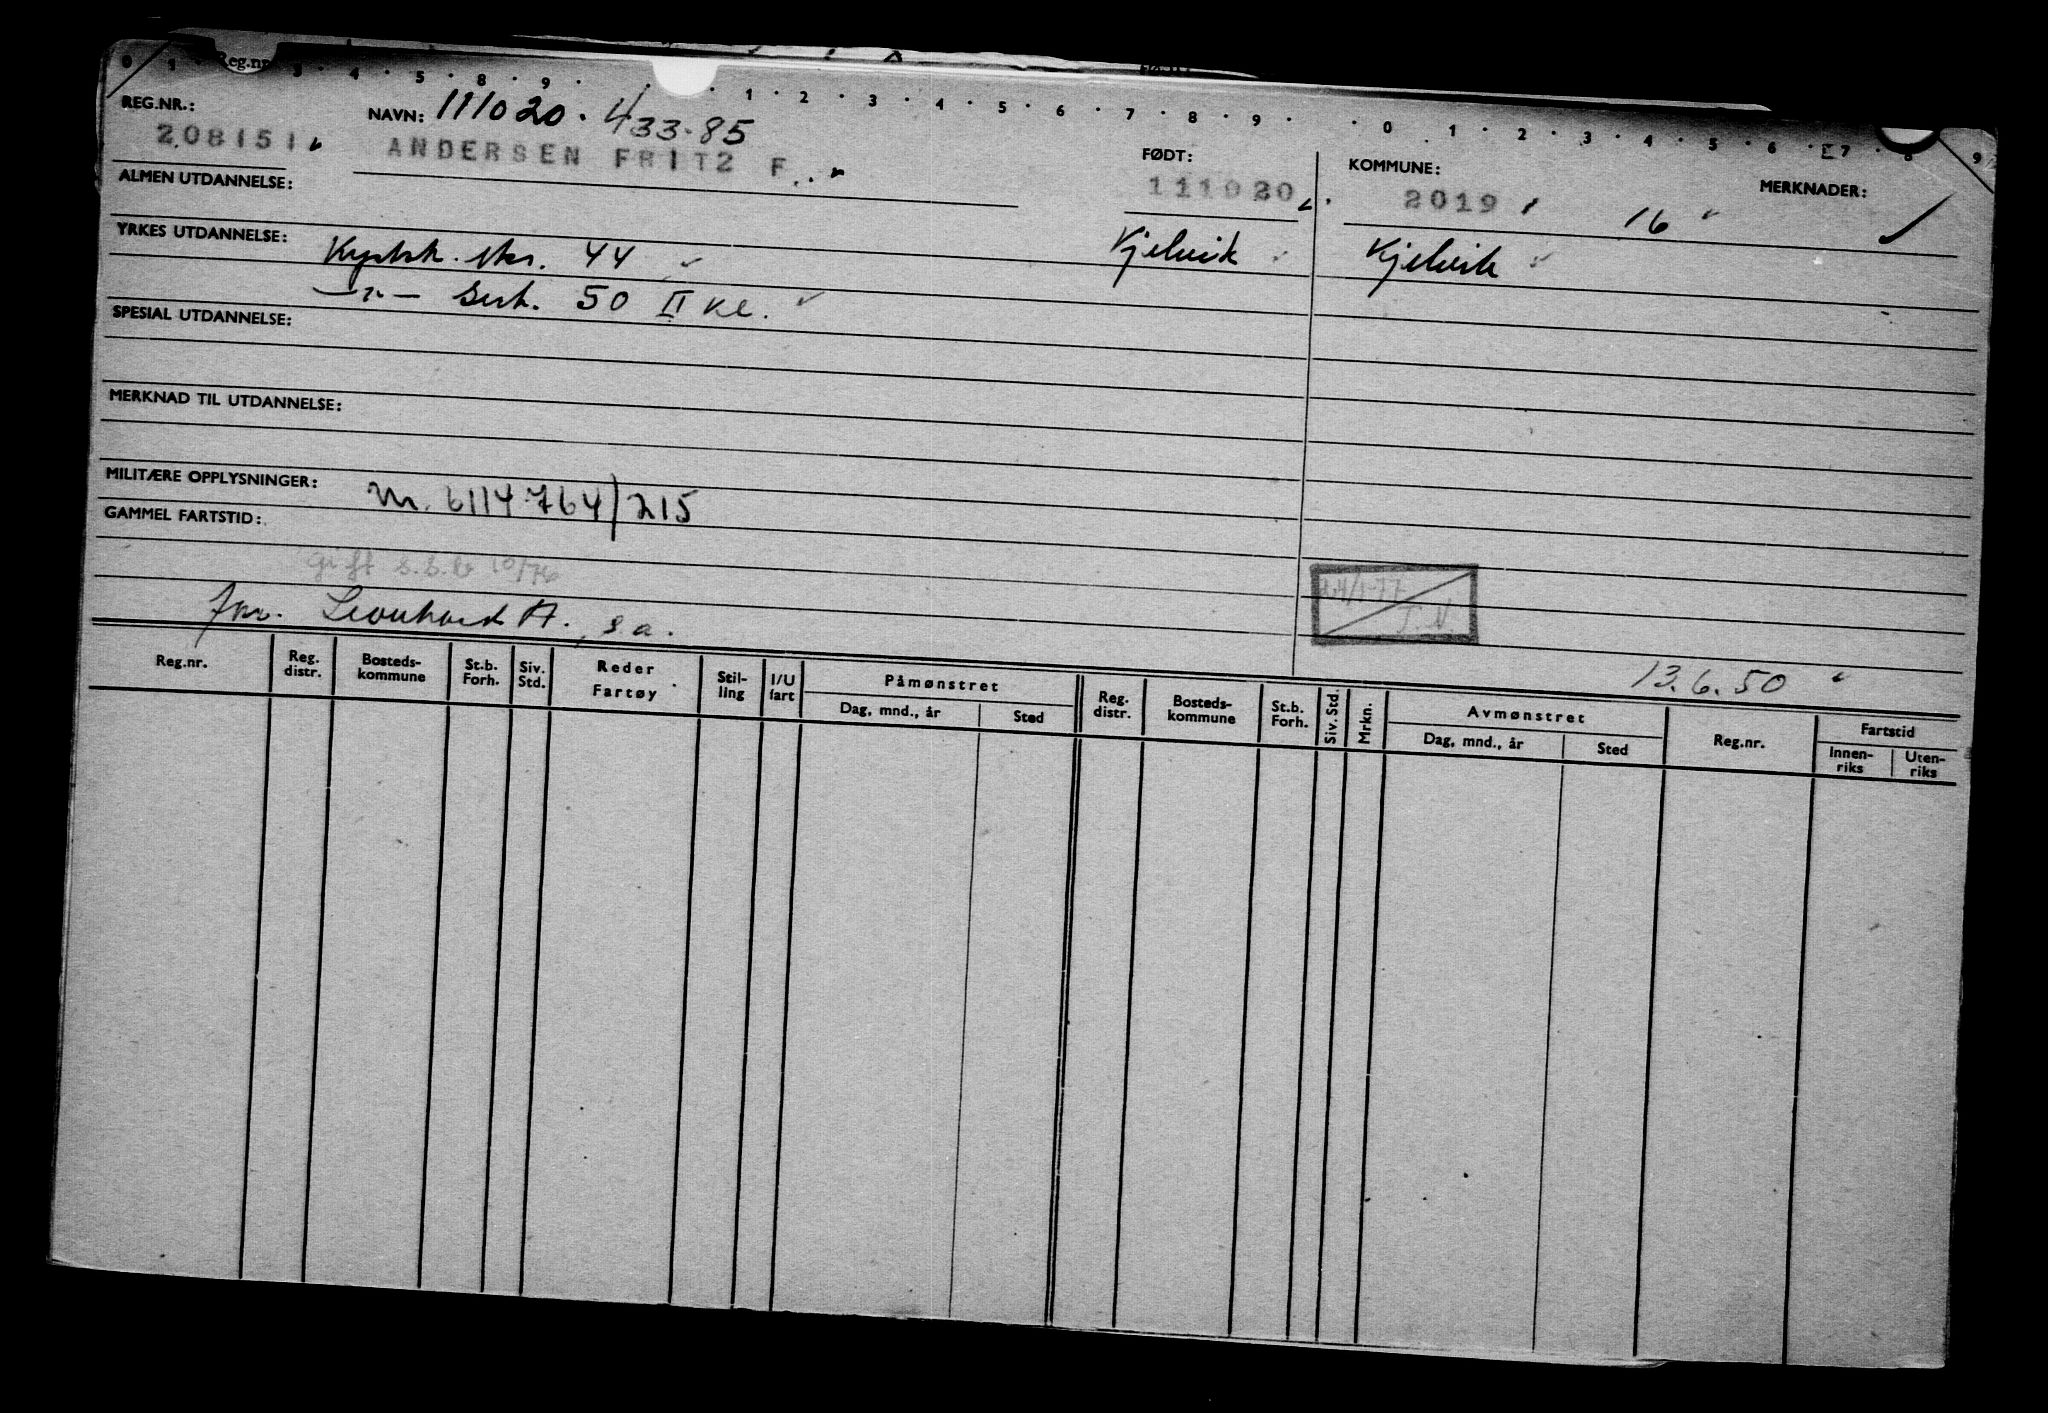 Reg.nr
0 1 · 3 · 4 · 5 · 8 · 9 · · 1 · 2 · 3 · 4 · 5 · 6 · 7 · 8 · 9 · · 0 · 1 · 2 · 3 · 4 · 5 · 6 · 7 · 8 · 9
REG.NR.: NAVN: 111020. 433.85 FØDT: KOMMUNE: MERKNADER:
208151 ANDERSEN FRITZ F. 111020 2019 16
ALMEN UTDANNELSE:
YRKES UTDANNELSE: Kystsk. 44 Kjelvik Kjelvik
—"— Sert. 50 II kl.
SPESIAL UTDANNELSE:
MERKNAD TIL UTDANNELSE:
MILITÆRE OPPLYSNINGER: Nr. 6114764/215
GAMMEL FARTSTID:
Gift 10/76
24/1-77
T.N.
far. Leonhard A., s.a.
13.6.50
Reg.nr. Reg. distr. Bosteds-kommune St.b. Forh. Siv. Std. Reder Fartøy Stil-ling I/U fart Påmønstret Dag, mnd., år Sted Reg. distr. Bosteds-kommune St.b. Forh. Siv. Std. Mrkn. Avmønstret Dag, mnd., år Sted Reg.nr. Fartstid Innen-riks Uten-riks